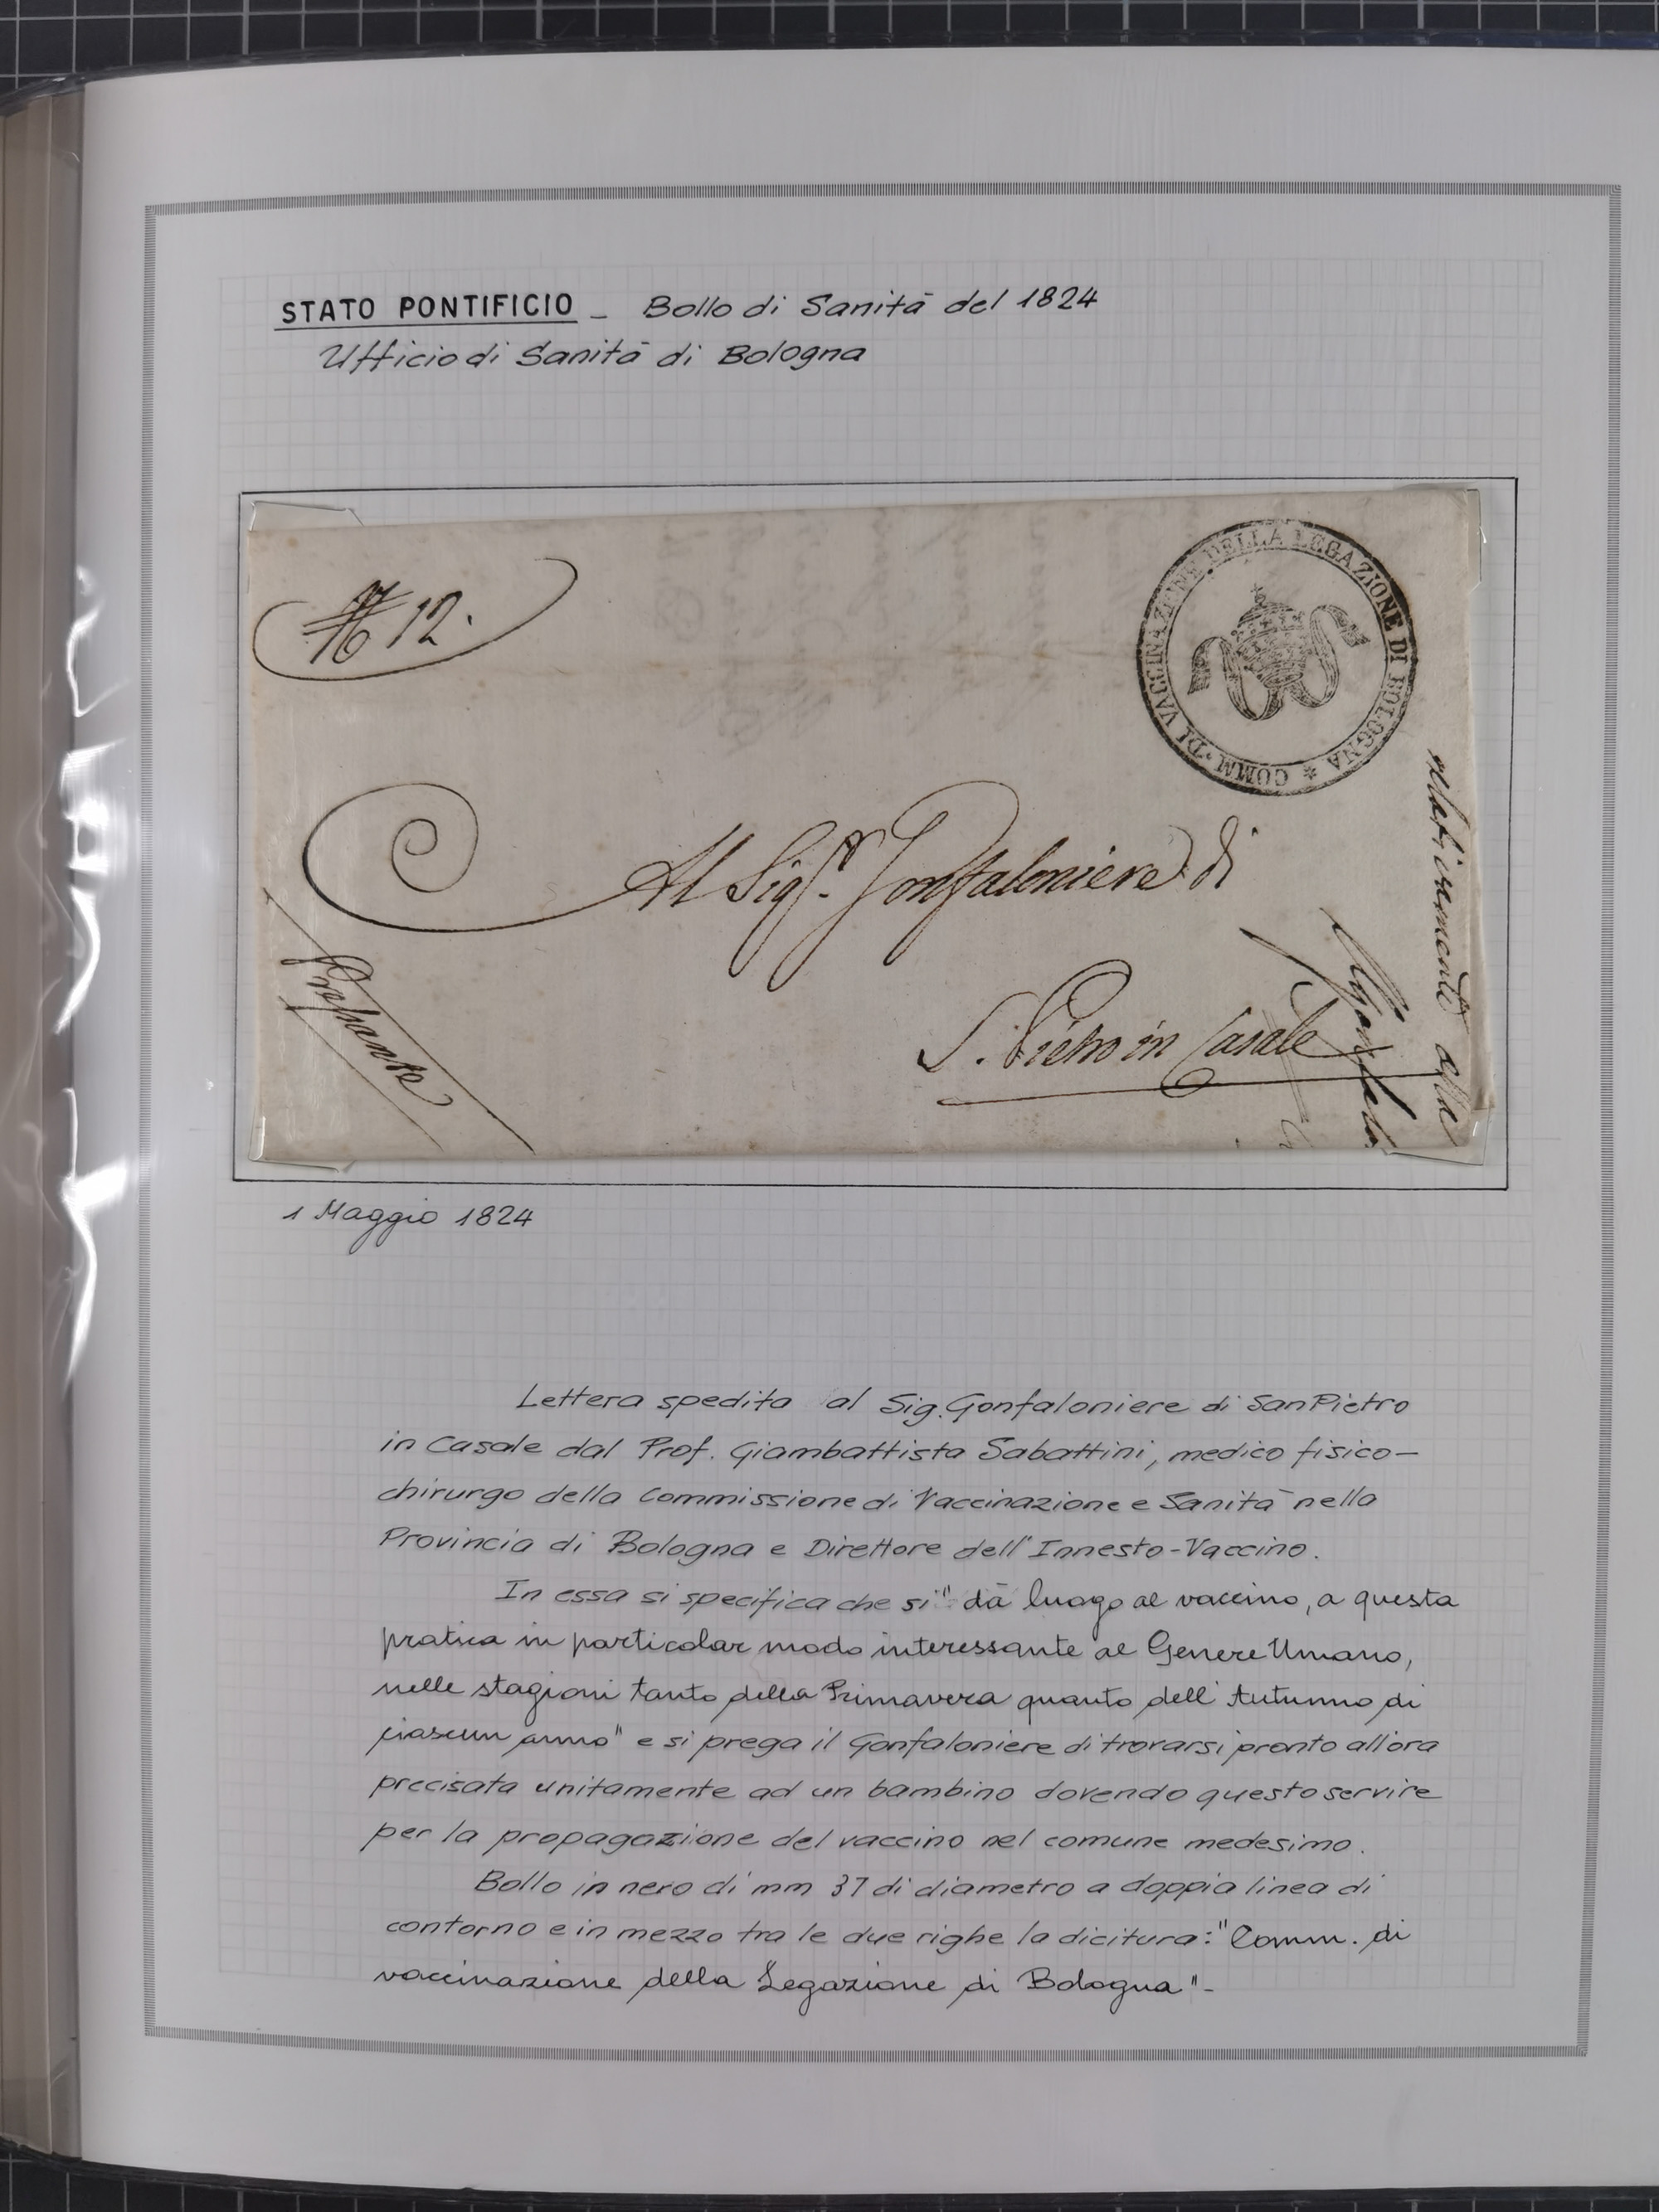 STATO PONTIFICIO - Bollo di Sanità del 1824
Ufficio di Sanità di Bologna
N 12.
COMM. DI VACCINAZIONE DELLA LEGAZIONE DI BOLOGNA *
Al Sigr. Gonfaloniere di
S. Pietro in Casale
Pressante
alla
1 Maggio 1824
Lettera spedita al Sig. Gonfaloniere di San Pietro
in Casale dal Prof. Giambattista Sabattini, medico fisico-
chirurgo della Commissione di Vaccinazione e Sanità nella
Provincia di Bologna e Direttore dell'Innesto-Vaccino.
In essa si specifica che si "dà luogo al vaccino, a questa
pratica in particolar modo interessante al Genere Umano,
nelle stagioni tanto della Primavera quanto dell'Autunno di
ciascun anno" e si prega il Gonfaloniere di trovarsi pronto all'ora
precisata unitamente ad un bambino dovendo questo servire
per la propagazione del vaccino nel comune medesimo.
Bollo in nero di mm 37 di diametro a doppia linea di
contorno e in mezzo tra le due righe la dicitura: "Comm. di
vaccinazione della Legazione di Bologna"-